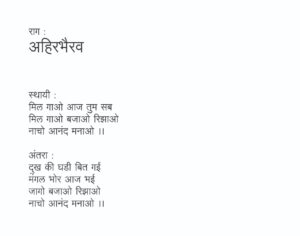 राग :
अहिरभैरव
स्थायी :
मिल गाओ आज तुम सब
मिल गाओ बजाओ रिझाओ
नाचो आनंद मनाओ ।।
अंतरा :
दुख की घडी बित गई
मंगल भोर आज भई
जागो बजाओ रिझाओ
नाचो आनंद मनाओ ।।